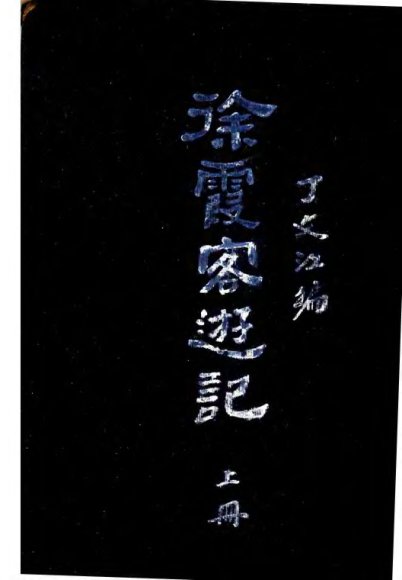 丁文江編
徐霞客遊記
上冊